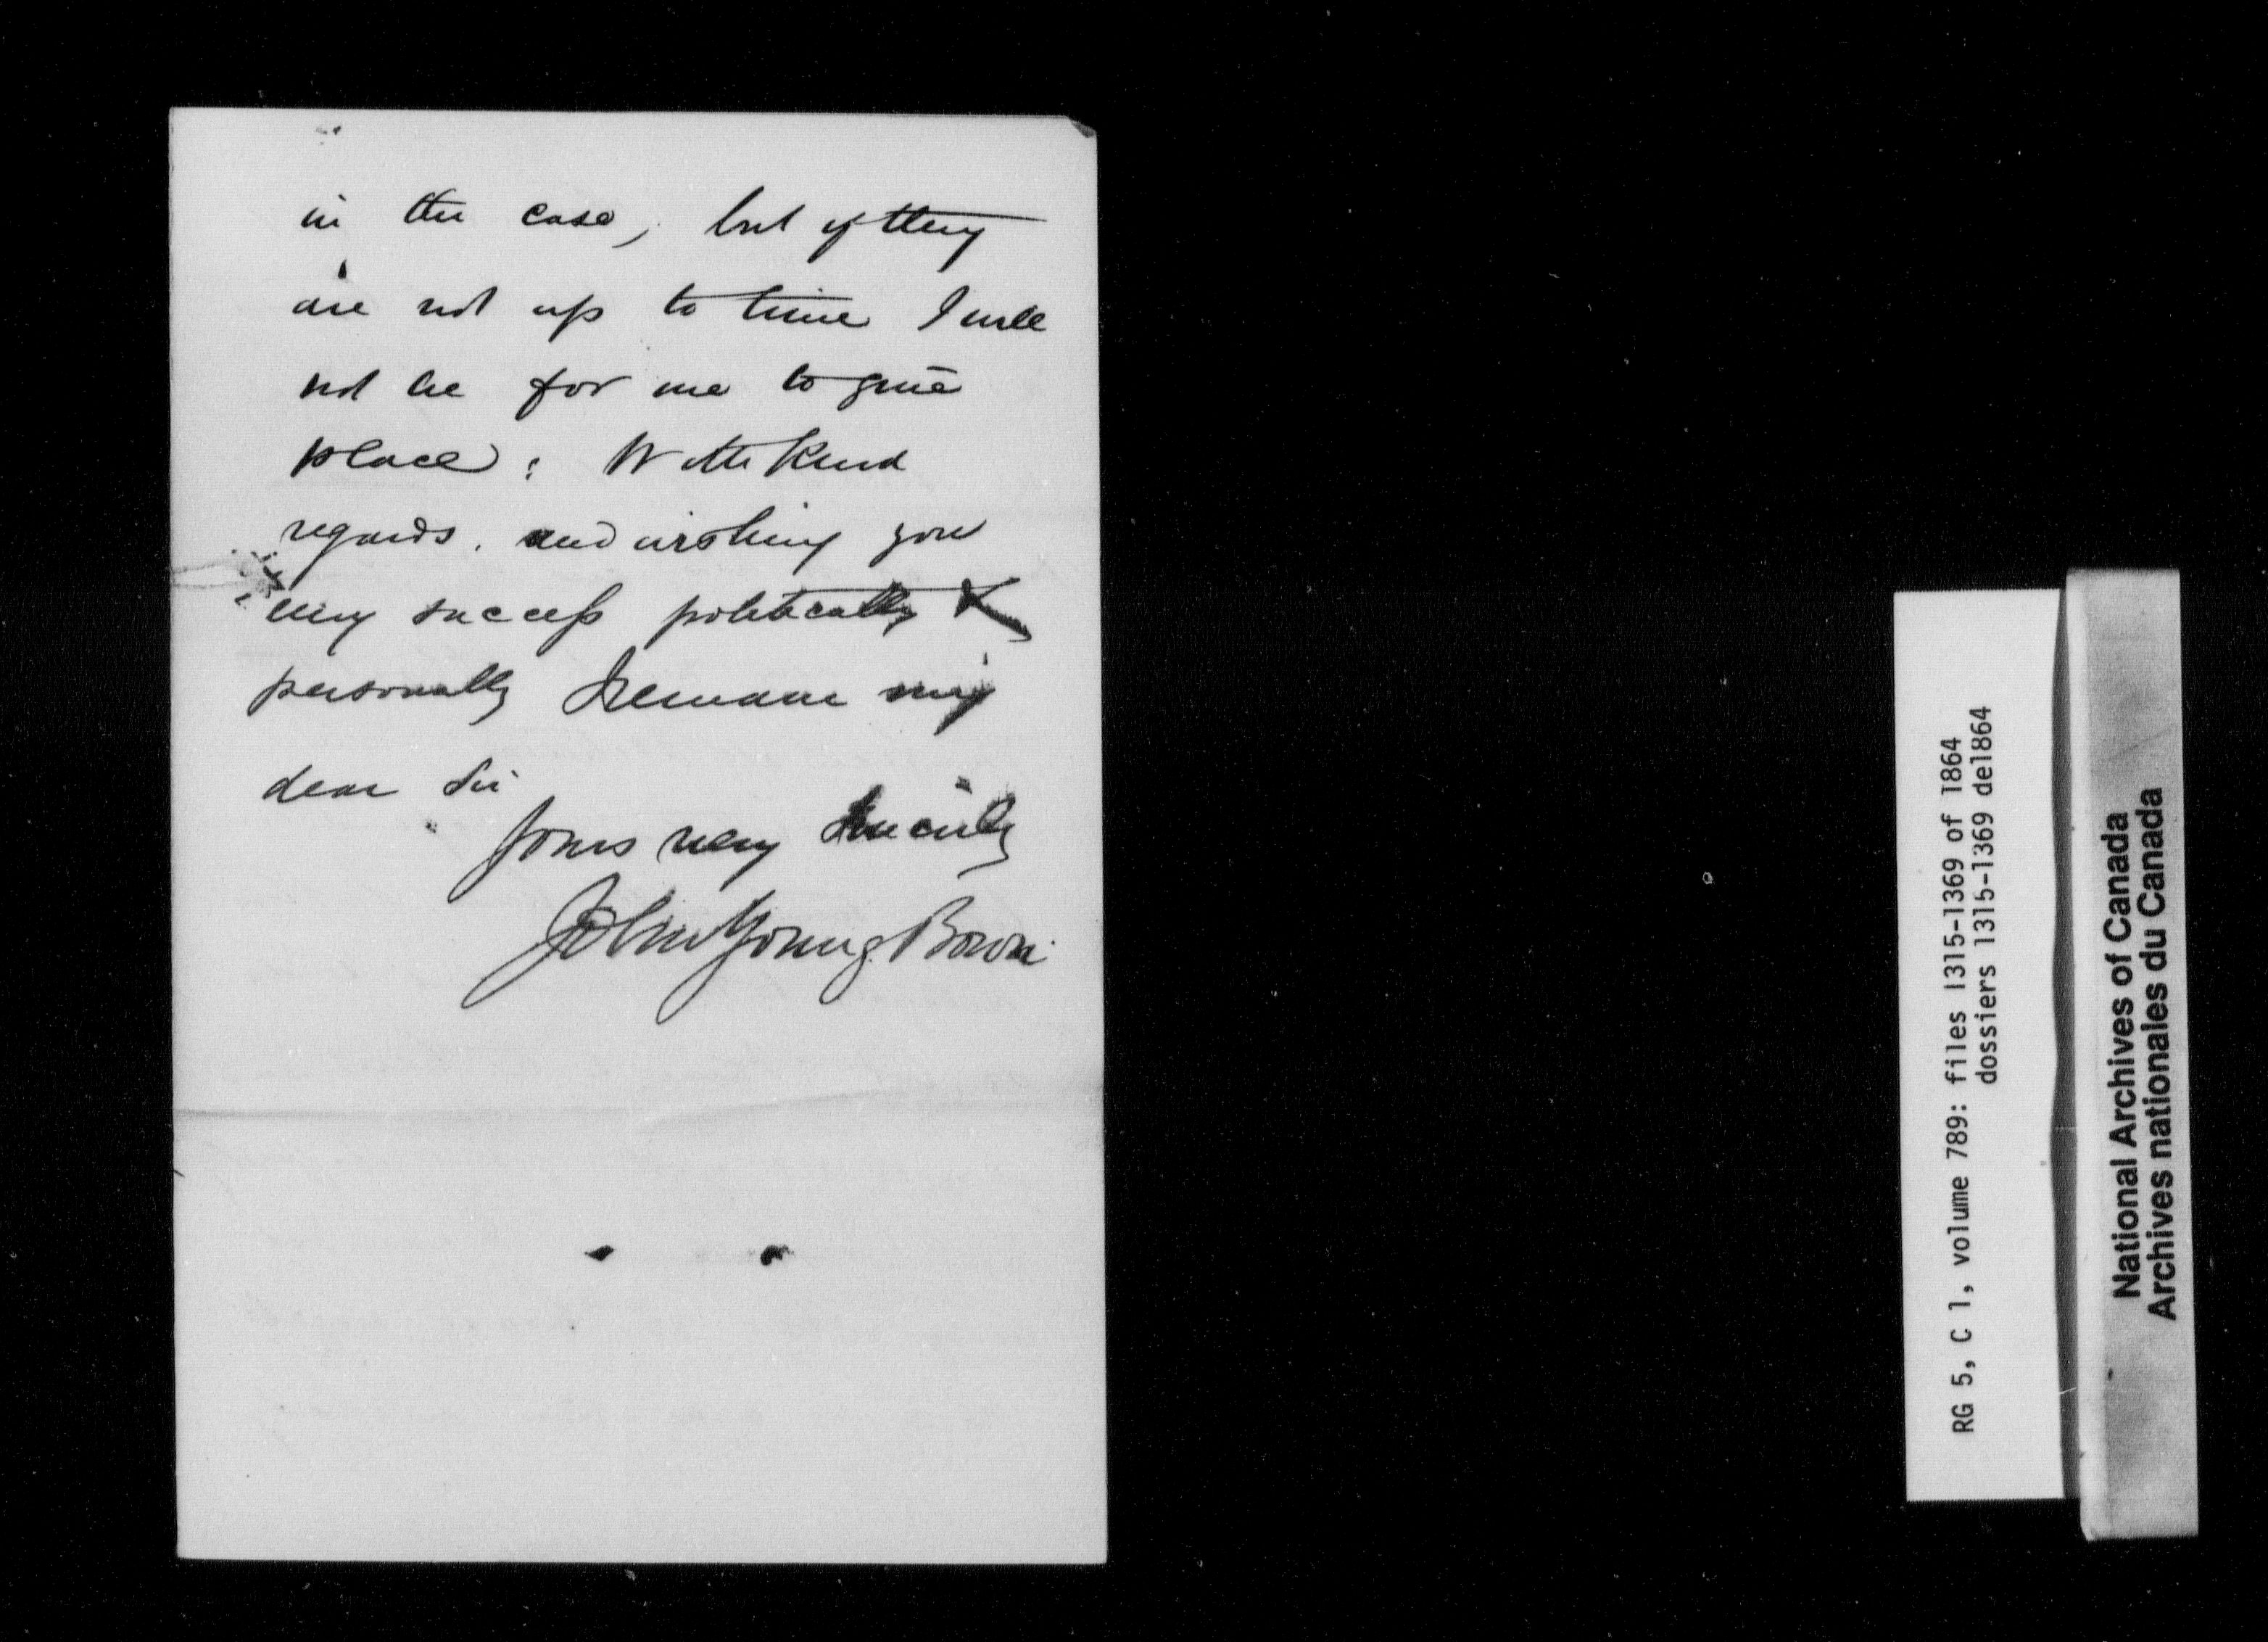 in the case, but if they
are not up to time I will
not be for me to give
place: With Kind
regards, and wishing you
every success politically &
personally I remain my
dear Sir
Yours very Sincerely
John Young Bown
RG 5, C 1, volume 789: files 1315-1369 of 1864
dossiers 1315-1369 de1864
National Archives of Canada
Archives nationales du Canada